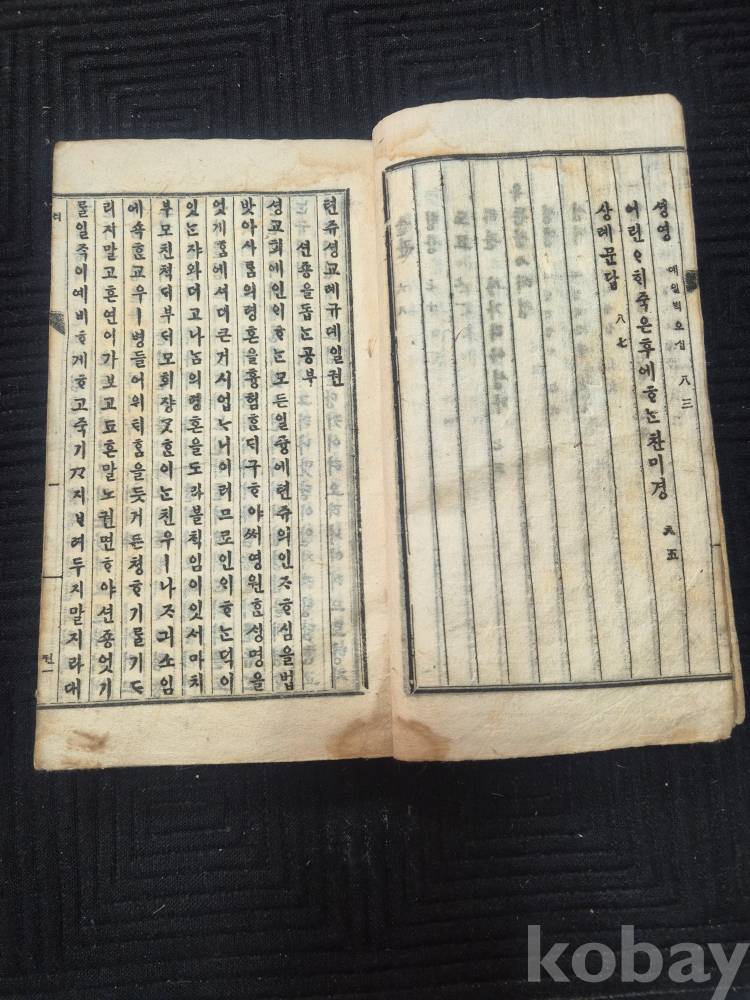 셩영 뎨일빅오십 八三
어린ᄋᆞᄒᆡ죽은후에ᄒᆞᄂᆞᆫ찬미경 九五
상례문답 八七
텬쥬셩교례규뎨일권
션죵을돕ᄂᆞᆫ공부
셩교회에인ᄋᆡᄒᆞᄂᆞᆫ모든일즁에텬쥬의인ᄌᆞᄒᆞ심을법
밧아사ᄅᆞᆷ의령혼을흉험ᄒᆞᆫᄃᆡ구ᄒᆞ야써영원ᄒᆞᆫ셩명을
엇게ᄒᆞᆷ에서더큰거시업ᄂᆞ니이러므로인ᄋᆡᄒᆞᄂᆞᆫ덕이
잇ᄂᆞᆫ쟈와더고나ᄂᆞᆷ의령혼을도라볼ᄎᆡᆨ임이잇서마치
부모친쳑ᄃᆡ부ᄃᆡ모회쟝ᄀᆞᆺᄒᆞᆫ이ᄂᆞᆫ친우ㅣ나ᄌᆞ긔소임
에쇽ᄒᆞᆫ교우ㅣ병들어위ᄐᆡᄒᆞᆷ을듯거든쳥ᄒᆞ기ᄅᆞᆯ기ᄃᆞ
리지말고흔연이가보고됴흔말노권면ᄒᆞ야션죵엇기
ᄅᆞᆯ일즉이예비ᄒᆞ게ᄒᆞ고죽기ᄭᆞ지ᄇᆞ려두지말지라대
kobay